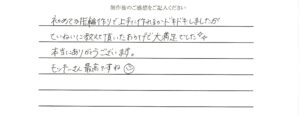 制作後のご感想をご記入ください
初めての圧縮作りで上手に作れるかドキドキしましたが
ていねいに教えて頂いたおかげで大満足でした
本当にありがとうございます。
モンキーさん最高ですね